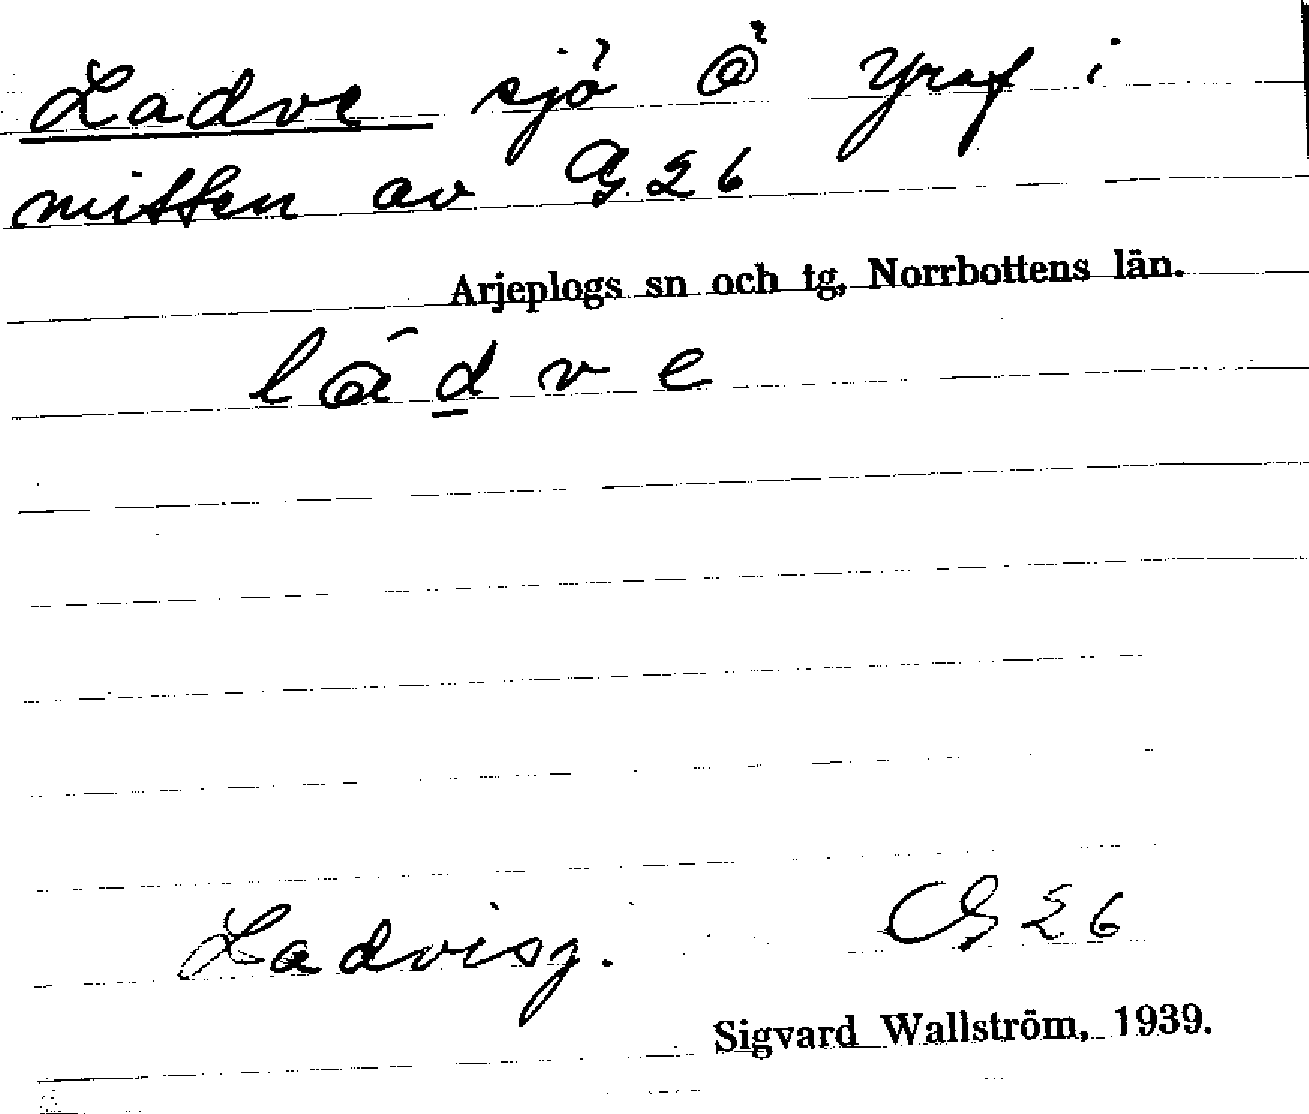 Ladve sjö Ö Yraf i
mitten av G 26
Arjeplogs sn och tg, Norrbottens län.
lád̲ve
Ladvisj. G 26
Sigvard Wallström, 1939.